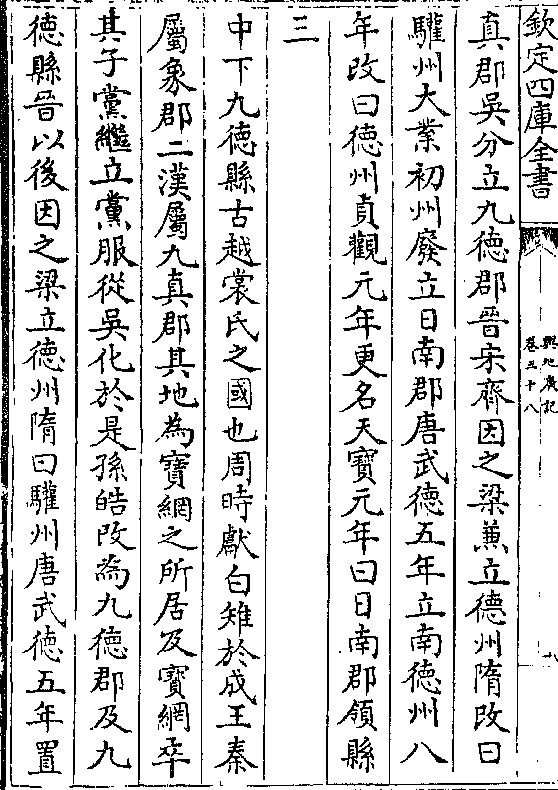 欽定四庫全書
輿地廣記
卷三十八
八
真郡吳分立九德郡晉宋齊因之梁兼立德州隋改曰
驩州大業初州廢立日南郡唐武德五年立南德州八
年改曰德州貞觀元年更名天寶元年曰日南郡領縣
三
中下九德縣古越裳氏之國也周時獻白雉於成王秦
屬象郡二漢屬九真郡其地為寶網之所居及寶網卒
其子黨繼立黨服從吳化於是孫皓改為九德郡及九
德縣晉以後因之梁立德州隋曰驩州唐武德五年置